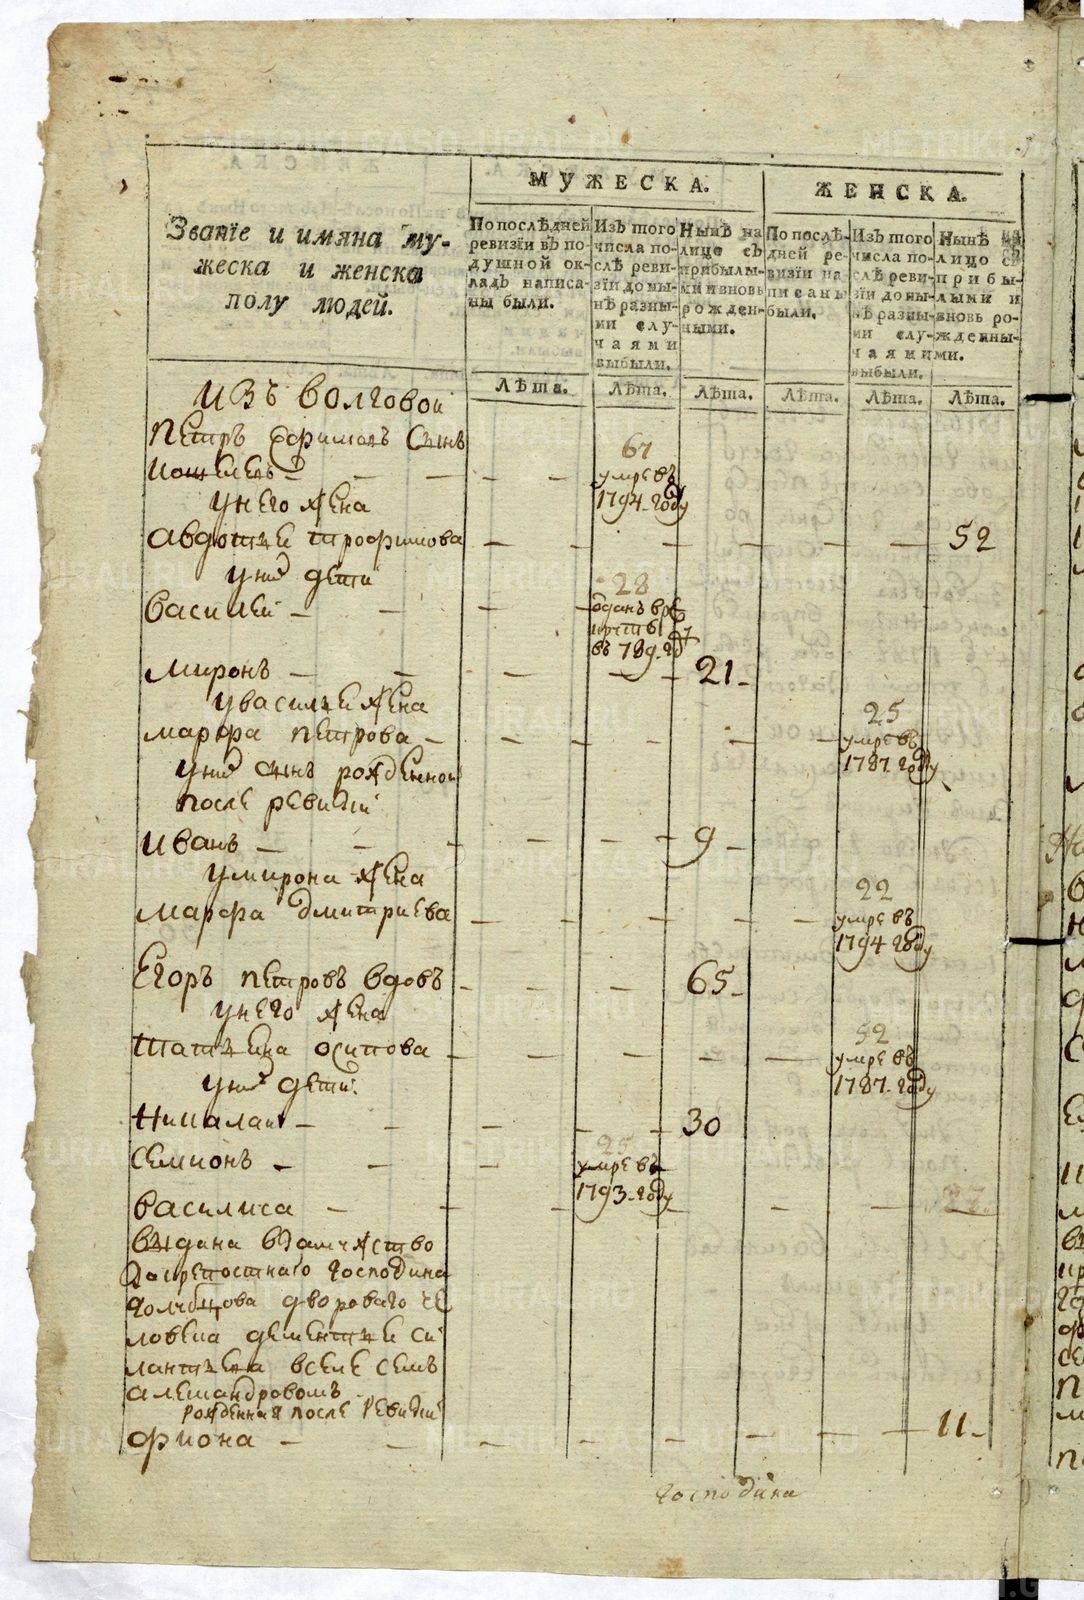 МУЖЕСКА.
ЖЕНСКА.
Званїе и имяна му-
жеска и женска
полу людей.
По послѣдней
ревизїи въ по-
душной ок-
ладъ написа-
ны были.
Изъ того
числа по-
слѣ реви-
зїи до ны-
нѣ разны-
ми слу-
чаями
выбыли.
Нынѣ на
лицо съ
прибылы-
ми и вновь
рожден-
ными.
По послѣ-
дней ре-
визїи на-
писаны
были.
Изъ того
числа по-
слѣ реви-
зїи до ны-
нѣ разны-
ми слу-
чаями
выбыли.
Нынѣ на
лицо съ
прибы-
лыми и
вновь ро-
жденны-
ми.
Лѣта. Лѣта. Лѣта. Лѣта. Лѣта. Лѣта.
Изъ волговои
Петръ Ефимовъ сынъ
67
умре въ
1794 году
у него жена
Авдотье Трофимова 52
у них дети
Василей
28
отданъ в ре
круты
въ 789 году
Миронъ 21
у Василье жена
Марфа Петрова
25
умре въ
1787 году
у них сынъ рожденной
после ревизии
Иванъ 9
у Мирона жена
Марфа Дмитриева
22
умре въ
1794 году
Егоръ Петровъ вдовъ 65
у него жена
Татьяна Осипова
52
умре въ
1787 году
у них дети
Николаи 30
Семионъ
25
умре въ
1793 году
Василиса 27
выдана взамужство
господина
дворового че
ловека Дементье Си
лантьева в селе семъ
Александровомъ
рожденная после ревизии
Фиона 11
господина